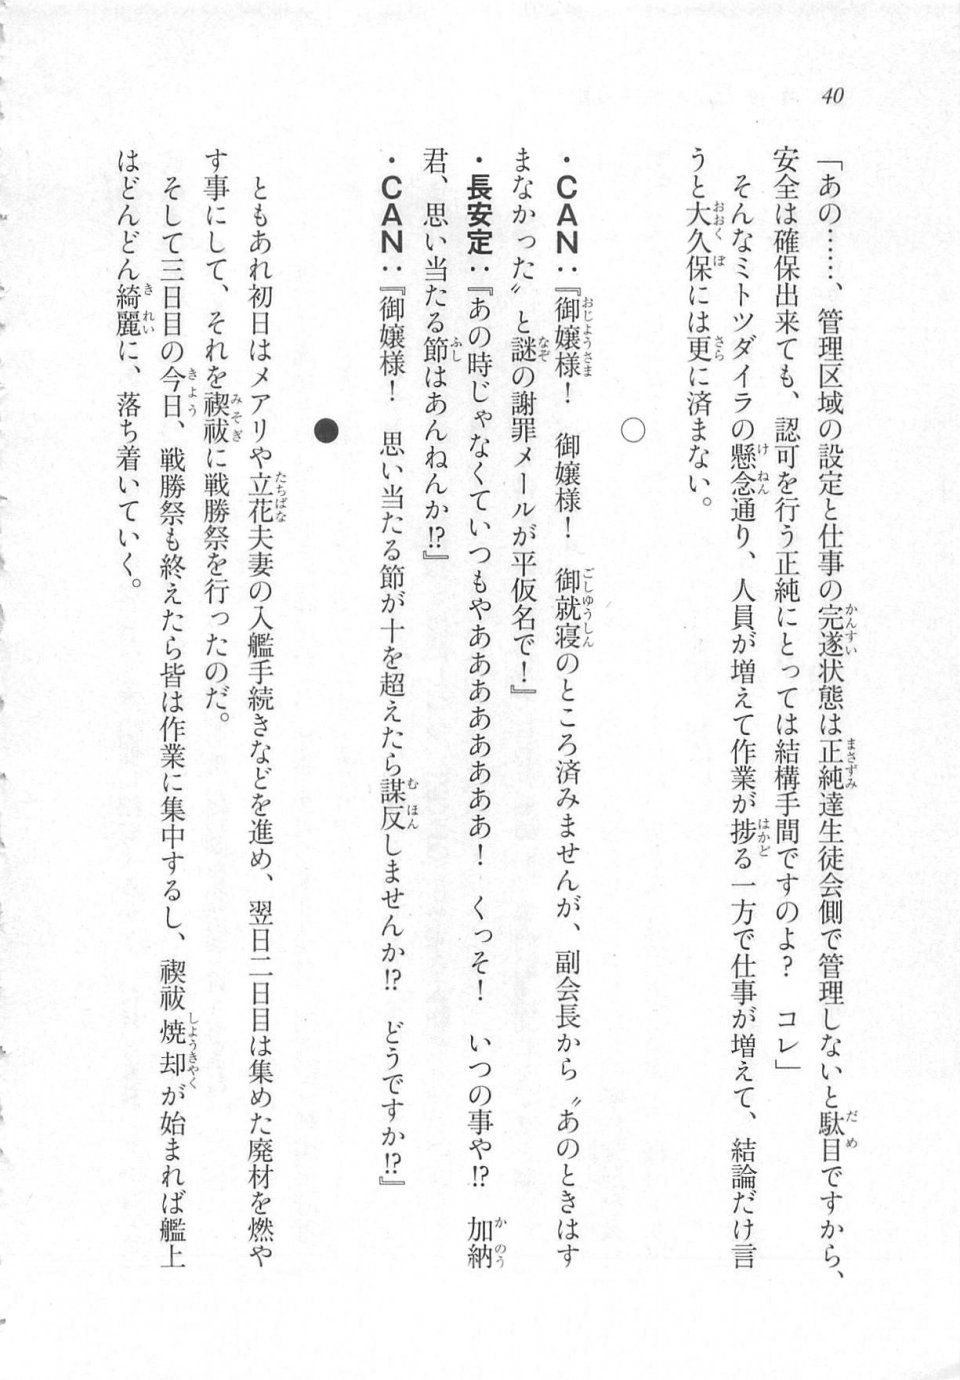 40
「あの……、管理区域の設定と仕事の完遂状態は正純達生徒会側で管理しないと駄目ですから、
安全は確保出来ても、認可を行う正純にとっては結構手間ですのよ?　コレ」
そんなミトツダイラの懸念通り、人員が増えて作業が捗る一方で仕事が増えて、結論だけ言
うと大久保には更に済まない。
○
・ＣＡＮ：『御嬢様！　御嬢様！　御就寝のところ済みませんが、副会長から〝あのときはす
まなかった〟と謎の謝罪メールが平仮名で！』
・長安定：『あの時じゃなくていつもやあああああああ！　くっそ！　いつの事や!?　加納
君、思い当たる節はあんねんか!?』
・ＣＡＮ：『御嬢様！　思い当たる節が十を超えたら謀反しませんか!?　どうですか!?』
●
ともあれ初日はメアリや立花夫妻の入艦手続きなどを進め、翌日二日目は集めた廃材を燃や
す事にして、それを禊祓に戦勝祭を行ったのだ。
そして三日目の今日、戦勝祭も終えたら皆は作業に集中するし、禊祓焼却が始まれば艦上
はどんどん綺麗に、落ち着いていく。